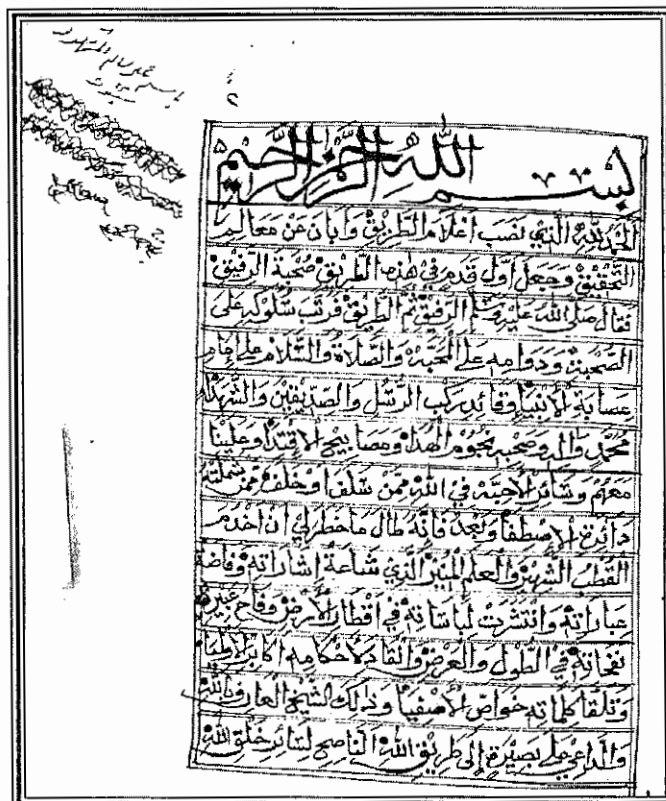 بسم الله الرحمن الرحيم
الحمد لله الذي نصب اعلام الطريق وابان عن معالم
التحقيق وجعل اول قدم في هذه الطريق صحبة الرفيق
فقال صلى الله عليه وسلم الرفيق ثم الطريق فرتب سلوكه على
الصحبة ودوامه على المحبة والصلاة والسلام على امام
عصابة الانبيا وقائد ركب الرسل والصديقين والشهدا
محمد واله وصحبه نجوم الهدا ومصابيح الاقتدا وعلينا
معهم وسائر الاحبة في الله ممن سلف او خلف ممن شملته
دائرة الاصطفا وبعد فانه طال ما خطر لي ان اخدم
القطب الشهير والعلم المنير الذي شاعة اشاراته وفاضة
عباراته وانتشرت في اقطار الارض وفاح عبير
نفحاته في الطول والعرض والقادة لاحكامه اكابر الاوليا
وتلقا كلماته خواص الاصفيا وذلك الشيخ العارف بالله
والداعي على بصيرة الى طريق الله الناصح لسائر خلق الله